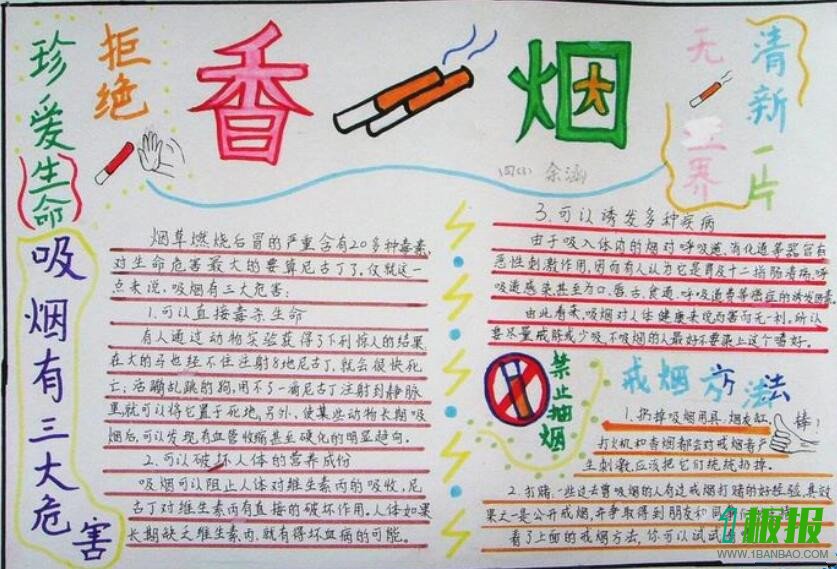 珍爱生命
拒绝
香烟
无
世界
清新一片
四(1) 余涵
吸烟有三大危害
烟草燃烧后冒的严重含有20多种毒素,
对生命危害最大的要算尼古丁了,仅就这一
点来说,吸烟有三大危害:
1.可以直接毒杀生命
有人通过动物实验获得了下列惊人的结果,
在大的马也经不住注射8地尼古丁,就会很快死
亡;活蹦乱跳的狗,用不了一滴尼古丁注射到静脉
里就可以将它置于死地,另外,使某些动物长期吸
烟后,可以发现有血管收缩甚至硬化的明显趋向。
2.可以破坏人体的营养成份
吸烟可以阻止人体对维生素丙的吸收,尼
古丁对维生素丙有直接的破坏作用。人体如果
长期缺乏维生素丙,就有得坏血病的可能。
3.可以诱发多种疾病
由于吸入体内的烟对呼吸道、消化道等器官有
恶性刺激作用,因而有人认为它是胃及十二指肠溃疡、呼
吸道感染甚至为口、唇、舌、食道、呼吸道费等癌症的诱发因素。
由此看来,吸烟对人体健康来说有害而无一利,所以
要尽量戒除或少吸,不吸烟的人最好不要染上这个嗜好。
禁止抽烟
戒烟方法
棒!
1.扔掉吸烟用具:烟灰缸、
打火机和香烟都会对戒烟者产
生刺激,应该把它们统统扔掉。
2.打赌:一些过去曾吸烟的人有过戒烟打赌的好经验,其效
果之一是公开戒烟,并争取得到朋友和同事
看了上面的戒烟方法,你可以试试
1板报
WWW.1BANBAO.COM